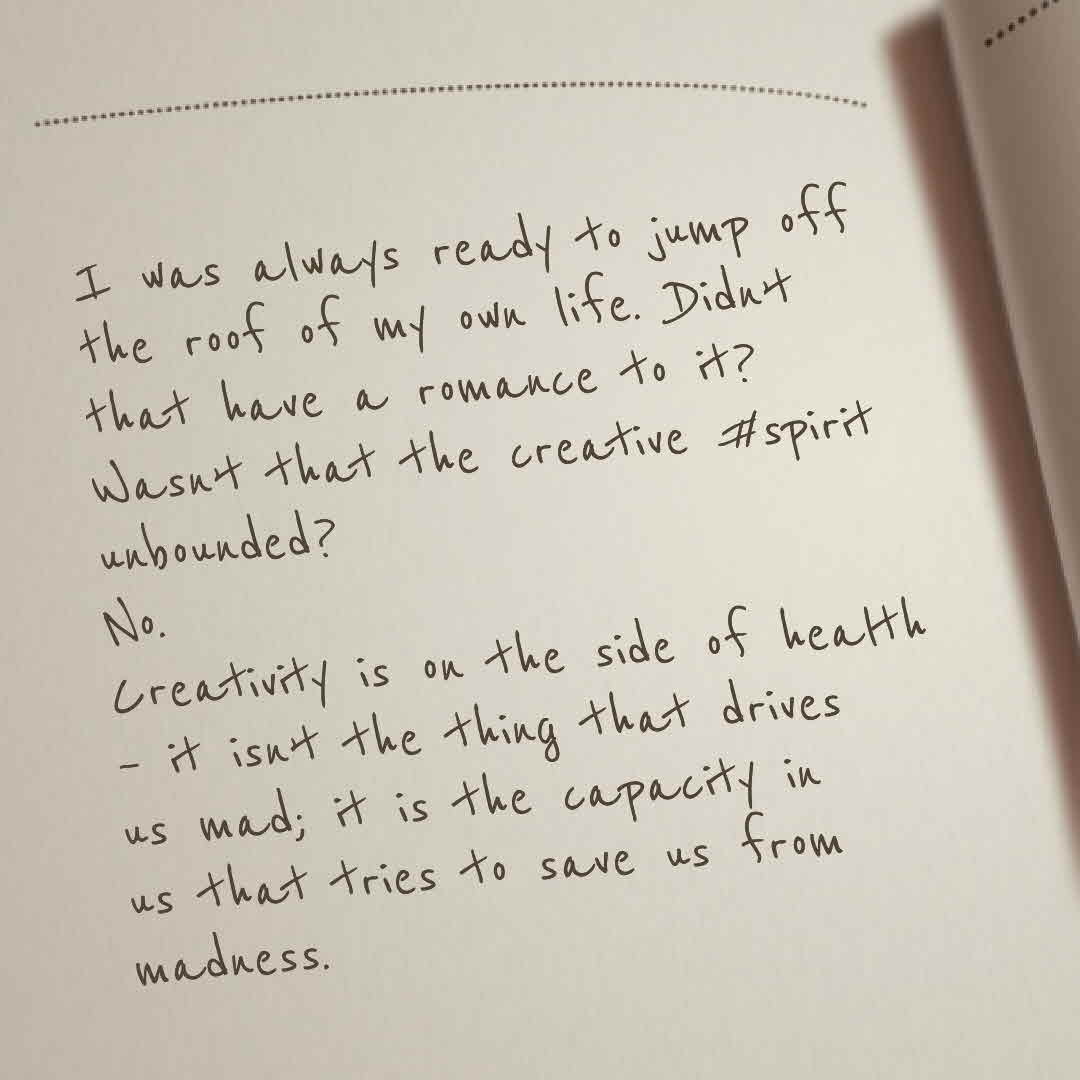 I was always ready to jump off
the roof of my own life. Didnt
that have a romance to it?
Wasnt that the creative #spirit
unbounded?
No.
Creativity is on the side of health
- it isnt the thing that drives
us mad; it is the capacity in
us that tries to save us from
madness.